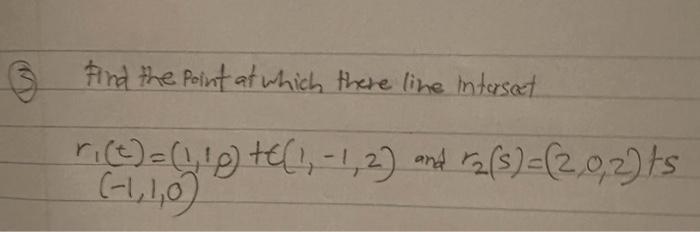 ③ find the point at which there line intersect
r₁(t)=(1,1,0)+t(1,-1,2) and r₂(s)=(2,0,2)+s
(-1,1,0)